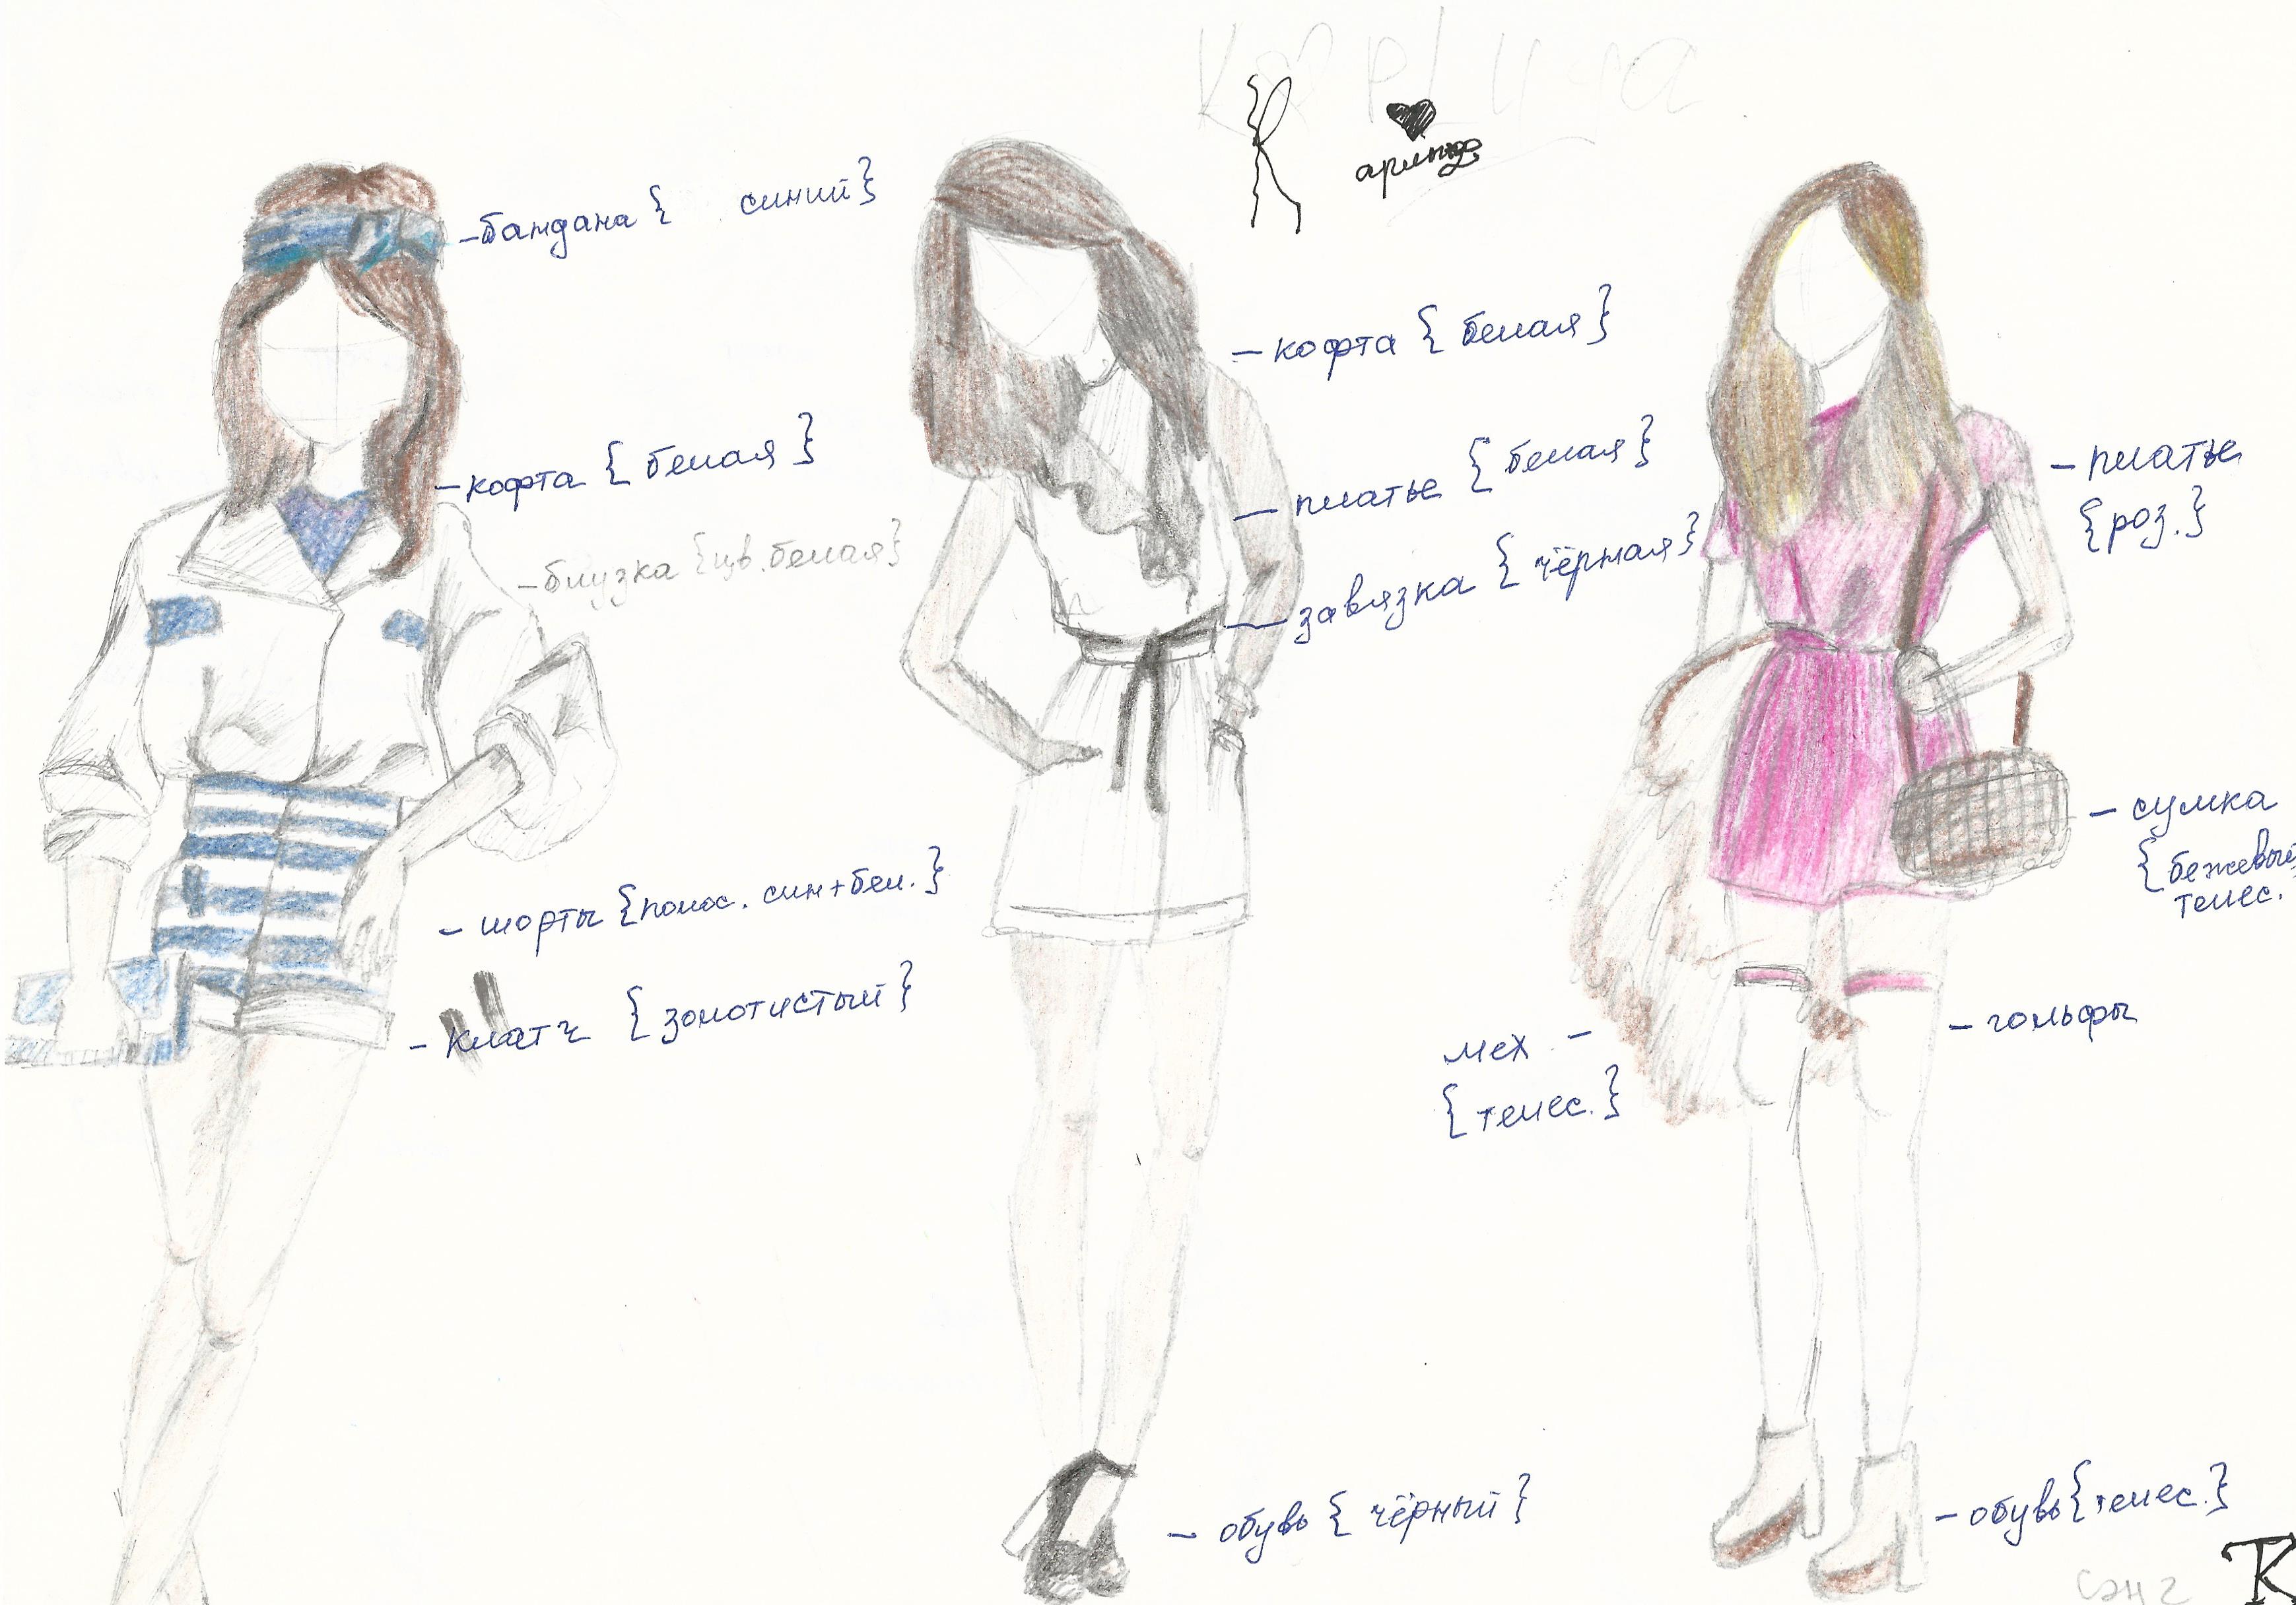 К
аринда
-бандана { синий}
-кофта { белая }
-блузка {цв.белая}
- шорты {полос. син+бел.}
- клатч { золотистый }
- кофта { белая }
- платье { белая }
- завязка { чёрная}
- обувь { чёрный }
- платье
{роз.}
- сумка
{бежевый
телес.
- гольфы
мех -
{телес.}
- обувь{телес.}